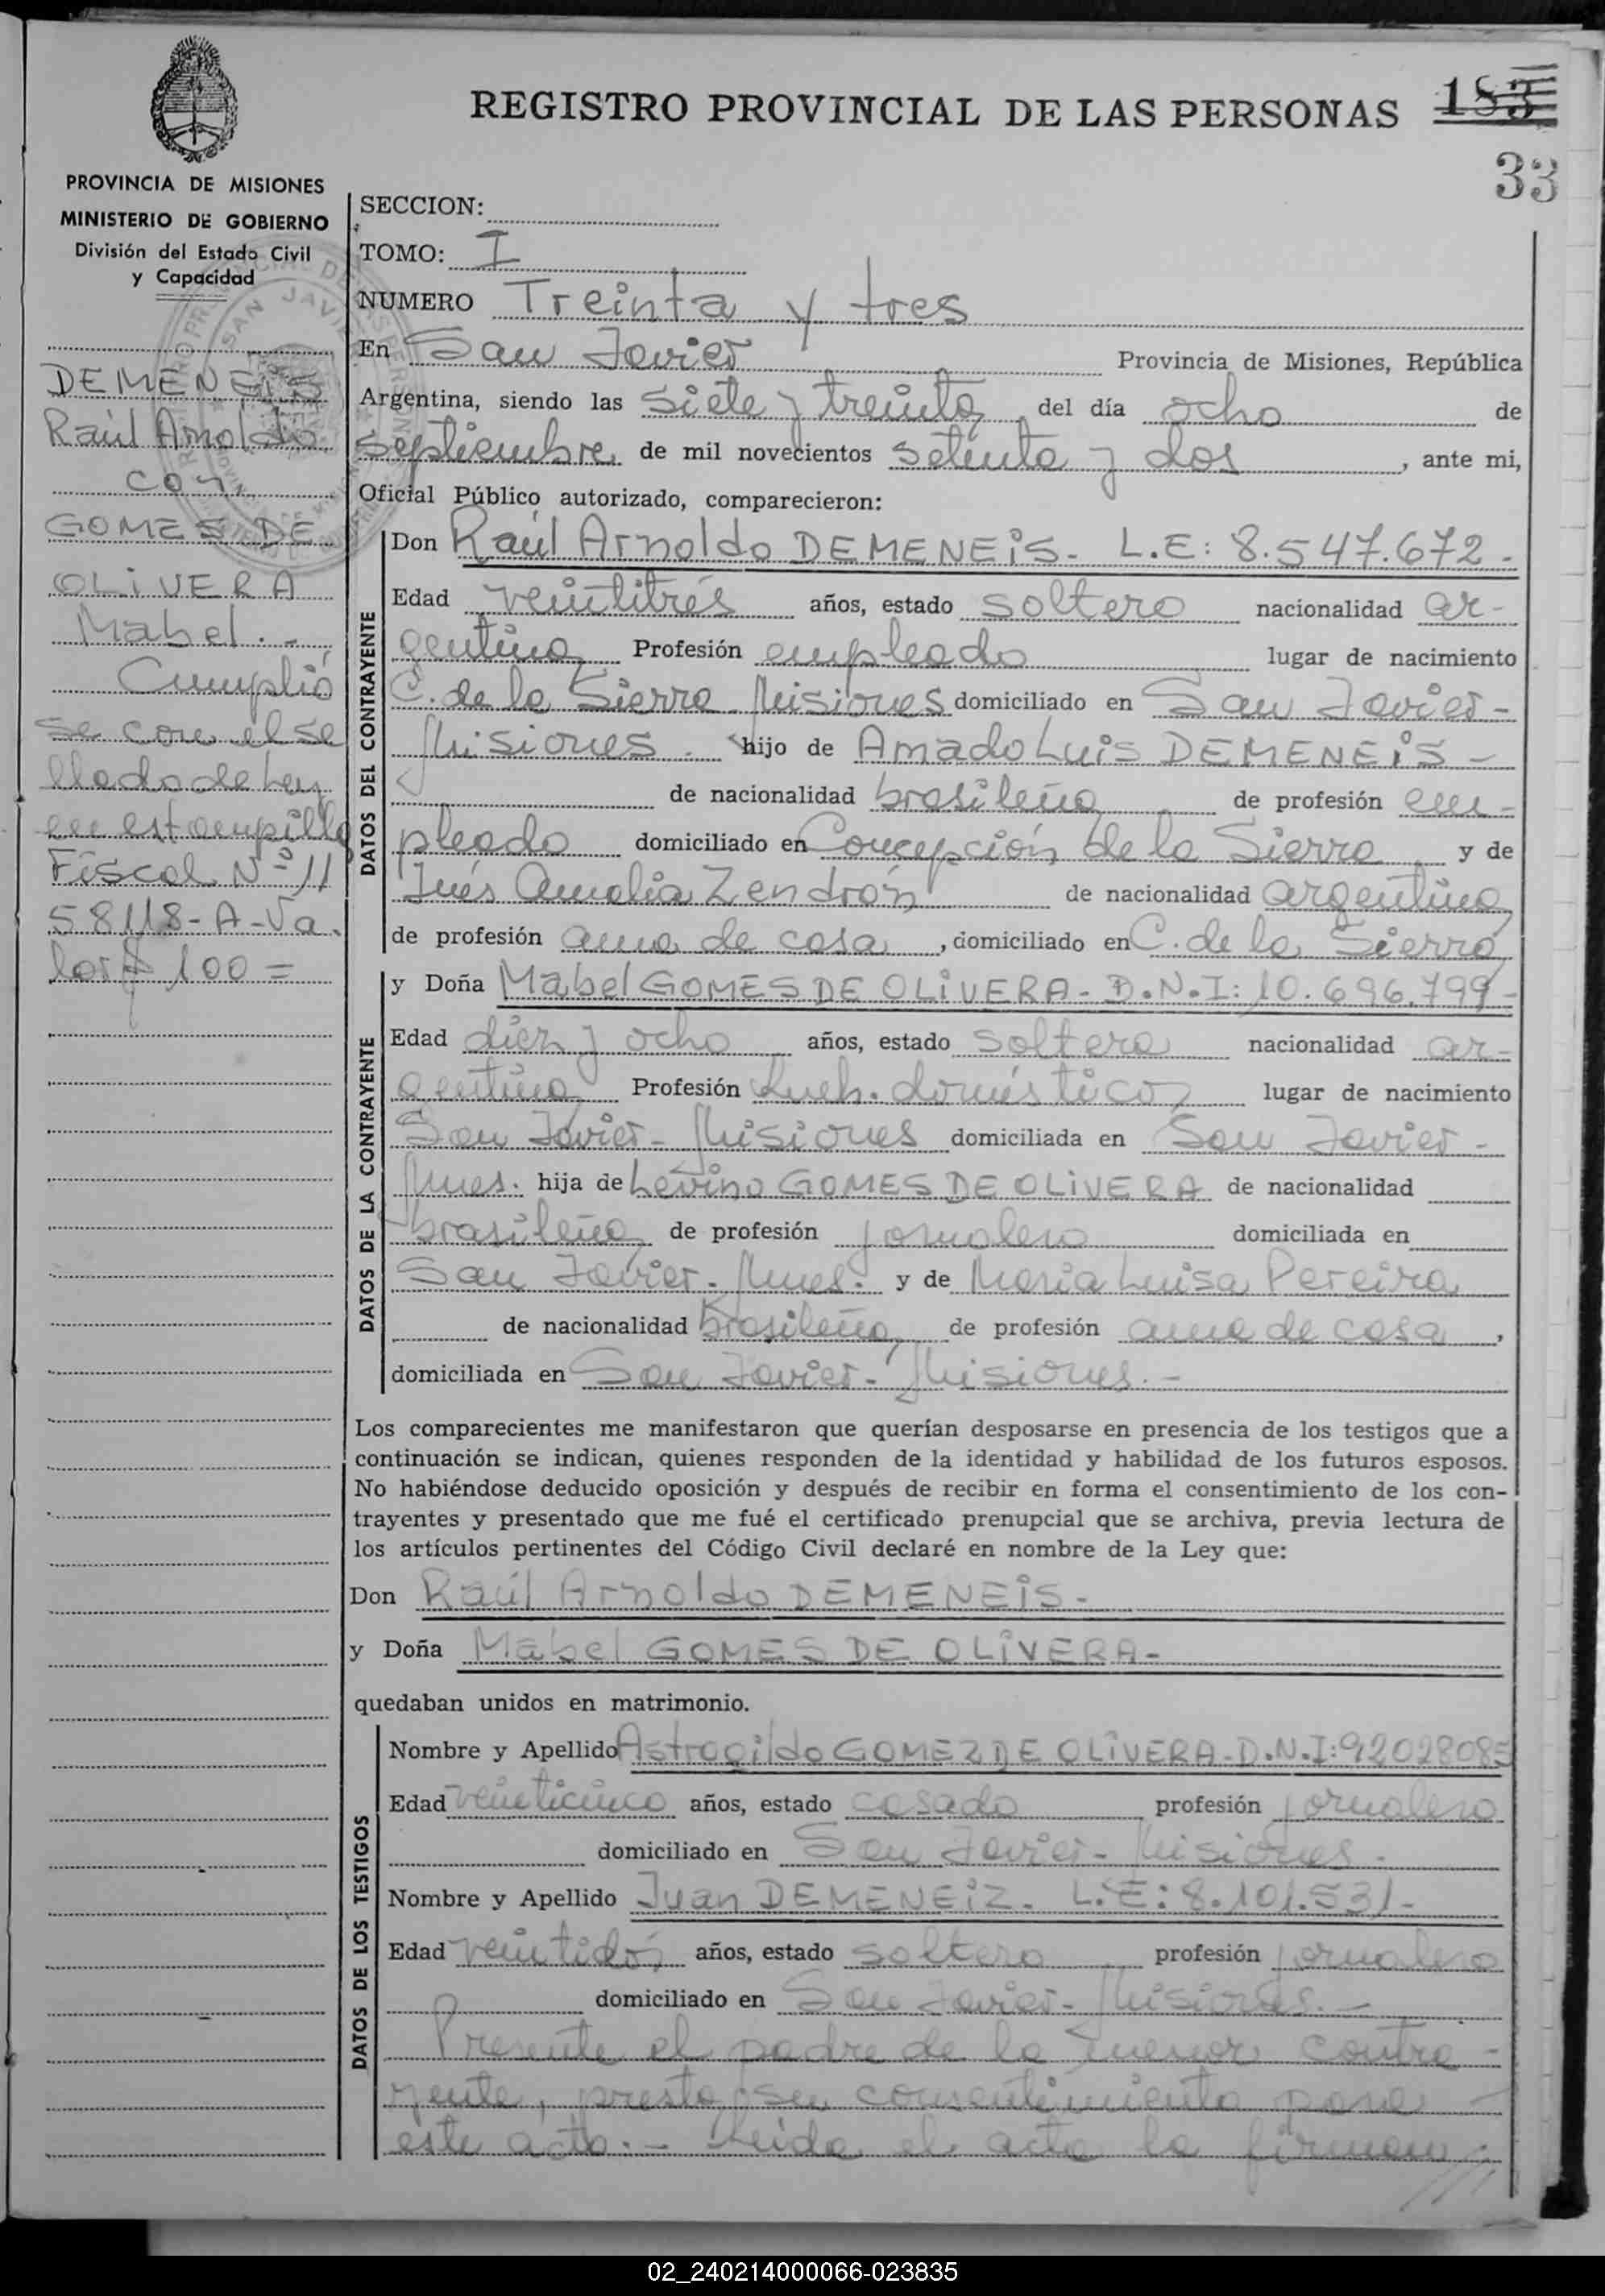 REGISTRO PROVINCIAL DE LAS PERSONAS 183
33
PROVINCIA DE MISIONES
MINISTERIO DE GOBIERNO
División del Estado Civil
y Capacidad
DEMENEiS
Raúl Arnoldo
con
GOMES DE
OLiVERA
Mabel.-
Cumplió
se con el se
llado de Ley
en estampilla
Fiscal Nº 11
58118-A-Va.
lor $ 100=
SECCION:
TOMO: I
NUMERO Treinta y tres
En San Javier Provincia de Misiones, República
Argentina, siendo las siete y treinta del día ocho de
septiembre de mil novecientos setenta y dos, ante mi,
Oficial Público autorizado, comparecieron:
DATOS DEL CONTRAYENTE
Don Raúl Arnoldo DEMENEiS- L.E: 8.547.672-
Edad veintitrés años, estado soltero nacionalidad ar-
gentina Profesión empleado lugar de nacimiento
C. de la Sierra-Misiones domiciliado en San Javier-
Misiones. hijo de Amado Luis DEMENEiS-
de nacionalidad brasileña de profesión em-
pleado domiciliado en Concepción de la Sierra y de
Inés Amalia Zendrón de nacionalidad argentina
de profesión ama de casa, domiciliado en C. de la Sierra
DATOS DE LA CONTRAYENTE
y Doña Mabel GOMES DE OLiVERA- D.N.I: 10.696.799-
Edad diez y ocho años, estado soltera nacionalidad ar-
gentina Profesión doméstico lugar de nacimiento
San Javier-Misiones domiciliada en San Javier-
Mnes. hija de Levino GOMES DE OLiVERA de nacionalidad
brasileña de profesión jornalero domiciliada en
San Javier-Mnes. y de Maria Luisa Pereira
de nacionalidad brasileña de profesión ama de casa,
domiciliada en San Javier-Misiones.-
Los comparecientes me manifestaron que querían desposarse en presencia de los testigos que a
continuación se indican, quienes responden de la identidad y habilidad de los futuros esposos.
No habiéndose deducido oposición y después de recibir en forma el consentimiento de los con-
trayentes y presentado que me fué el certificado prenupcial que se archiva, previa lectura de
los artículos pertinentes del Código Civil declaré en nombre de la Ley que:
Don Raúl Arnoldo DEMENEiS-
y Doña Mabel GOMES DE OLiVERA-
quedaban unidos en matrimonio.
DATOS DE LOS TESTIGOS
Nombre y Apellido Astrogildo GOMEZ DE OLiVERA-D.N.I:92028085
Edad veinticinco años, estado casado profesión jornalero
domiciliado en San Javier-Misiones-
Nombre y Apellido Juan DEMENEiZ. L.E: 8.101.531-
Edad veintidós años, estado soltero profesión jornalero
domiciliado en San Javier-Misiones.-
Presente el padre de la menor contra-
yente, presta su consentimiento para
este acto.- Leida el acta la firman
02_240214000066-023835